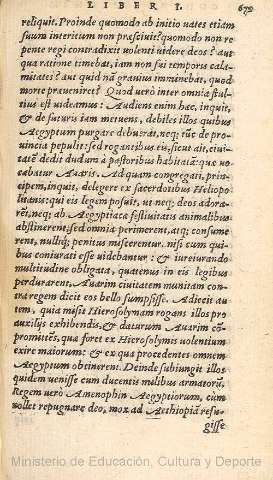 LIBER I. 679
reliquit. Proinde quomodo ab initio uates etiam
suum interitum non præsciuit? quomodo non re
pente regi contradixit uolenti uidere deos? aut
qua ratione timebat, iam non sui temporis cala-
mitates? aut quid nã grauius imminebat, quod
morte præueniret? Quod uerò inter omnia stul-
tius est uideamus: Audiens enim hæc, inquit,
& de futuris iam metuens, debiles illos quibus
Aegyptum purgare debuerat, neq; tũc de pro-
uincia pepulit: sed rogantibus eis, sicut ait, ciui-
tatẽ dedit dudum à pastoribus habitatã: quæ uo
cabatur Auaris. Ad quam congregati, prin-
cipem, inquit, delegere ex sacerdotibus Heliopo
litanis: qui eis legem posuit, ut neq; deos adora-
rẽt, neq; ab Aegyptiaca festiuitatis animalibus
abstinerent, sed omnia perimerent, atq; consume
rent, nulliq; penitus miscerentur nisi cum qui-
bus coniurati esse uidebantur: & iureiurando
multitudine obligata, quatenus in eis legibus
perdurarent, Auarim ciuitatem munitam con-
tra regem dicit eos bello sumpsisse. Adiecit au
tem, quia misit Hierosolymam rogans illos pro
auxilijs exhibendis, & daturum Auarim cõ-
promittẽs, qua foret ex Hierosolymis uolentium
exire maiorum: & ex qua procedentes omnem
Aegyptum obtinerent. Deinde subiungit illos
quidem uenisse cum ducentis milibus armatorũ,
Regem uerò Amenophin Aegyptiorum, cùm
nollet repugnare deo, mox ad Aethiopiã refu-
gisse
Ministerio de Educación, Cultura y Deporte